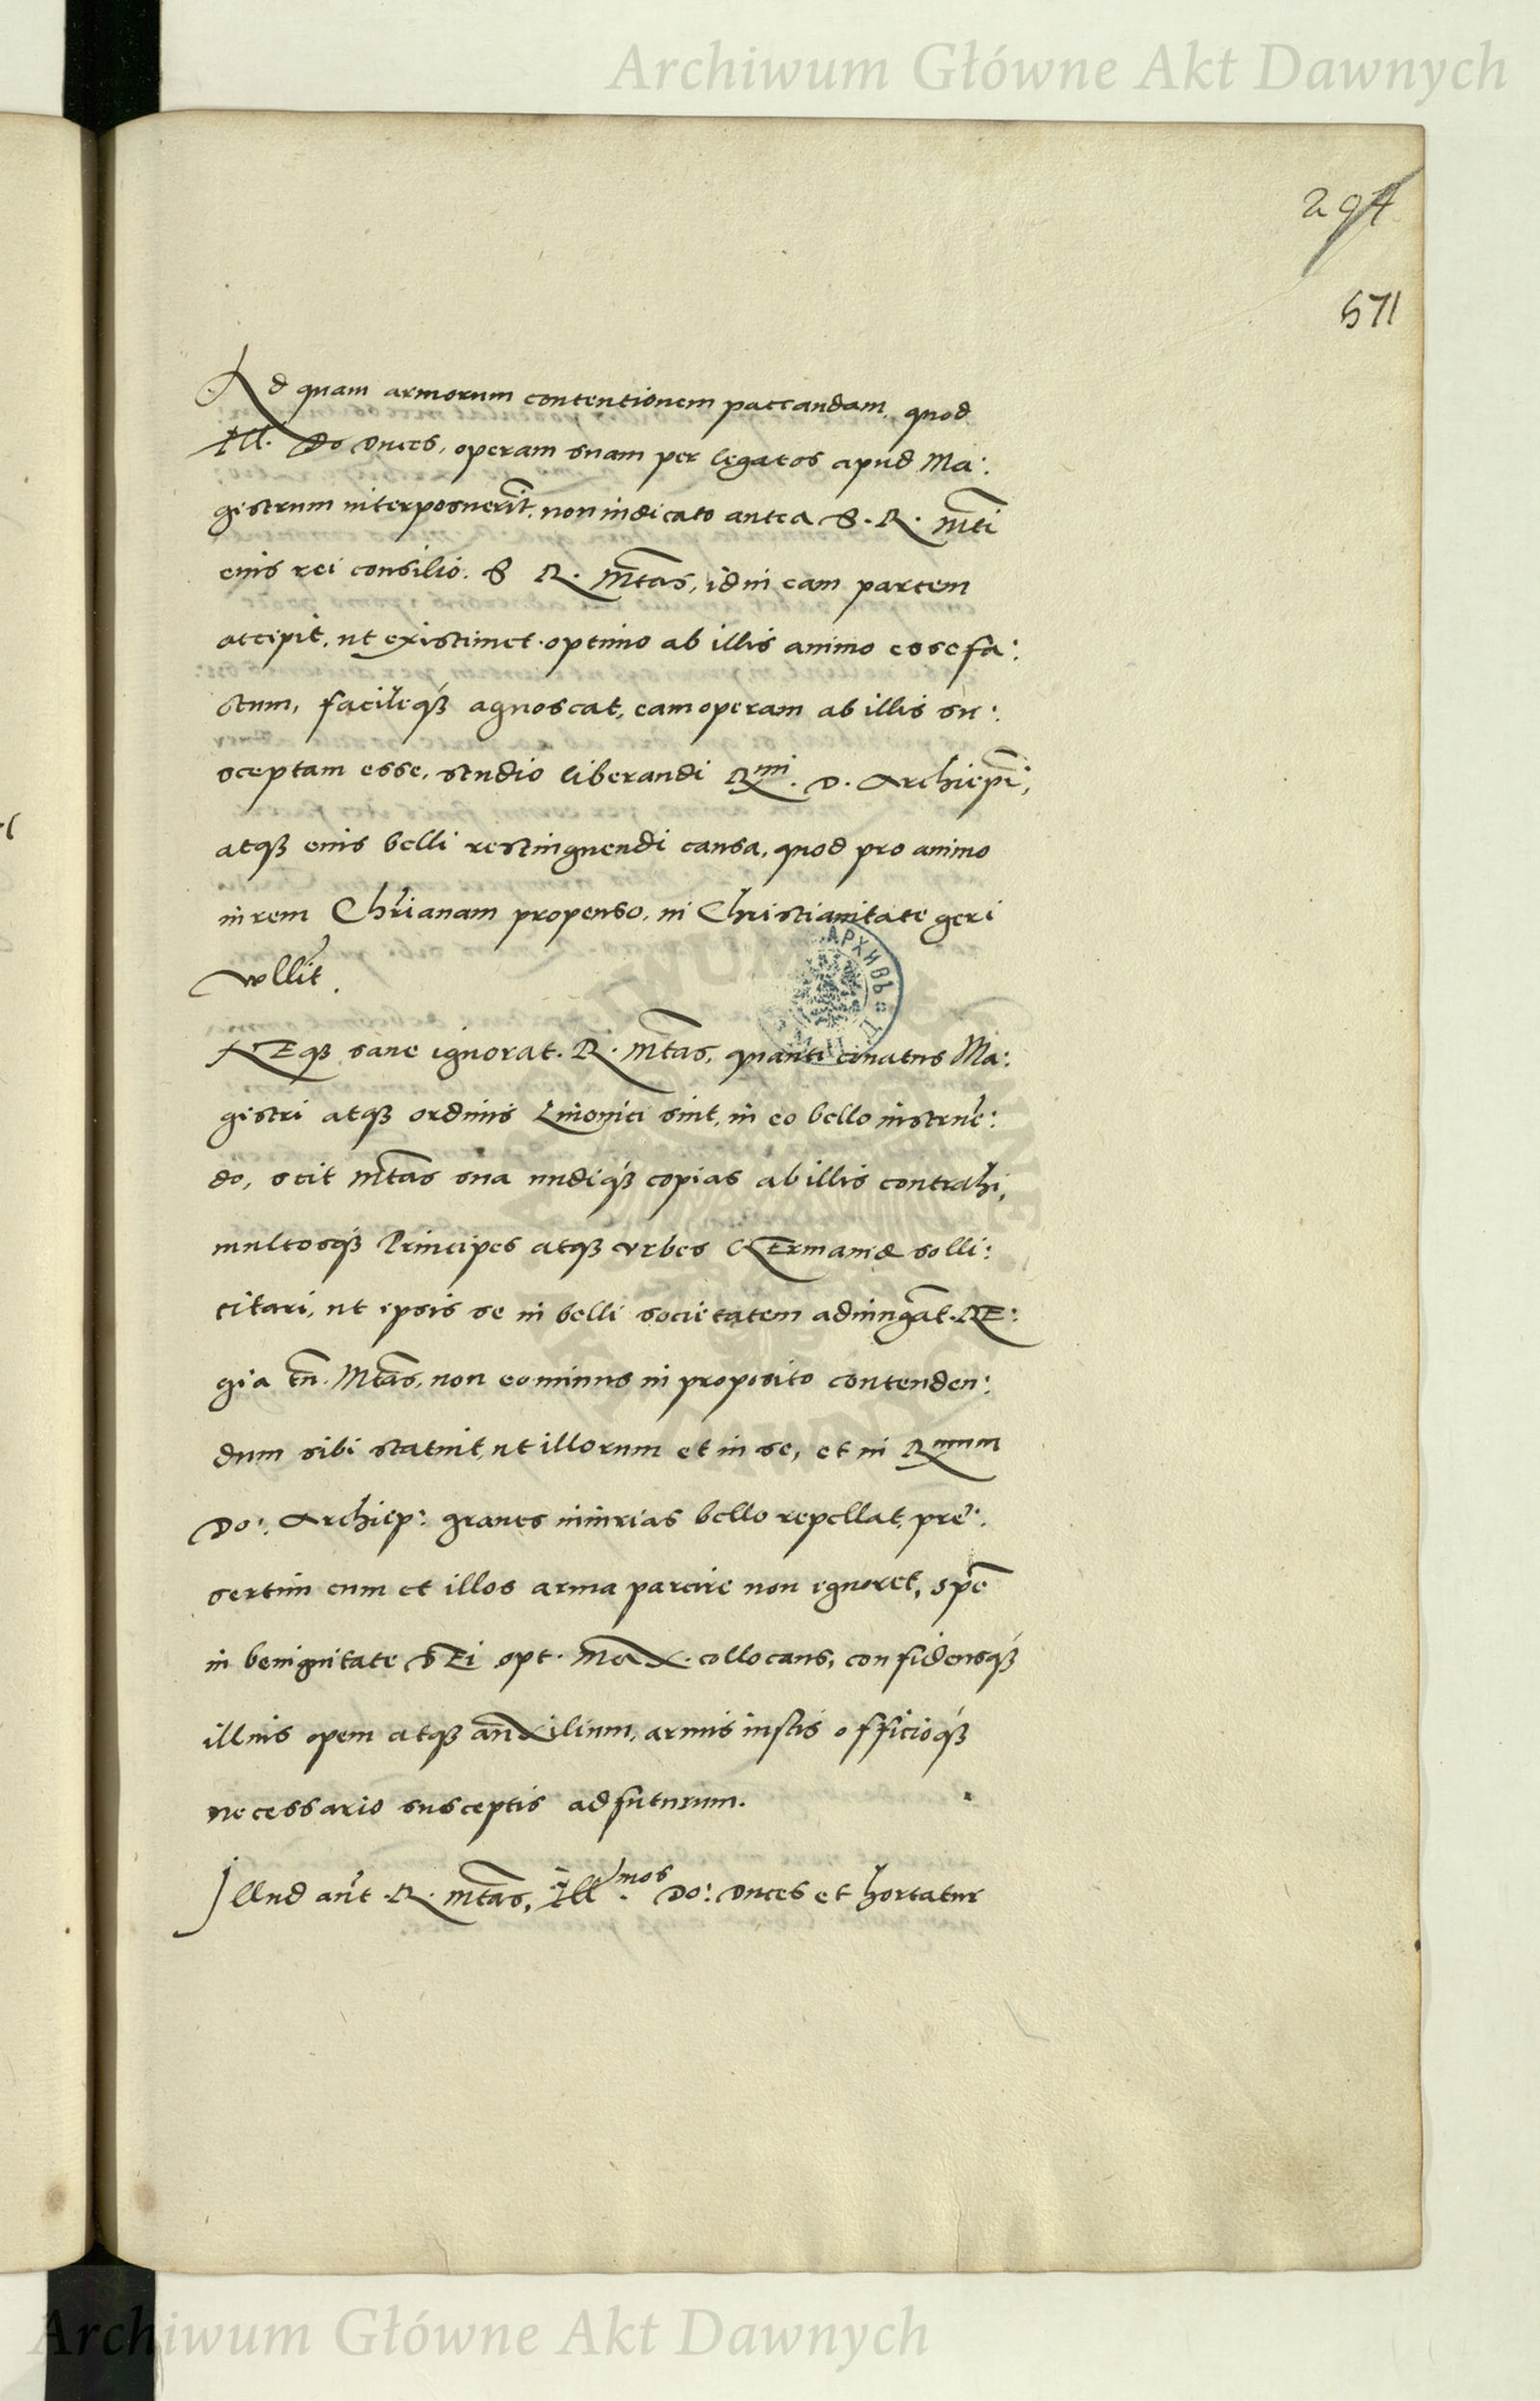 Archiwum Główne Akt Dawnych
294
571
Ad quam armorum contentionem paccandam, quod
Ill. Do Duces, operam suam per legatos apud Ma:
gistrum interposuerīt, non indicato antea S. R. Mti
eius rei consilio. S R. Mtas, id in eam partem
accipit, ut existimet optimo ab illis animo esse fa:
ctum, facileqȝ agnoscat, eam operam ab illis su:
sceptam esse, studio liberandi Rmi. D. Archiepi,
atqȝ eius belli restinguendi causa, quod pro animo
in rem Chrianam propenso, in Christianitate geri
nollīt.
NEqȝ sane ignorat. R. Mtas, quanti conatus Ma:
gistri atqȝ ordinis Liuonici sint, in eo bello instruē:
do, scit Mtas sua undiqȝ copias ab illis contrahi,
multosqȝ Principes atqȝ vrbes GErmaniæ solli:
citari, ut ipsis se in belli societatem adiungāt. RE:
gia tn̄. Mtas, non eo minus in proposito contenden:
dum sibi statuit, ut illorum et in se, et in Rmum
Do: Archiep: graues iniurias bello repellat, prę:
sertim cum et illos arma parare non ignoret, spē
in benignitate DEi opt. Max. collocans, confidensqȝ
illius opem atqȝ auxilium, armis iustis officioqȝ
necessario susceptis adfuturum.
Illud aūt R. Mtas, Ill.mos Do: Duces et hortatur
АРХИВЪ
Archiwum Główne Akt Dawnych